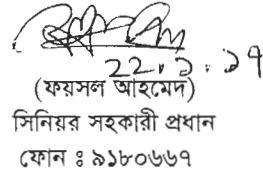 22.১.১৭
(ফয়সল আহমেদ)
সিনিয়র সহকারী প্রধান
ফোন ঃ ৯১৮০৬৬৭